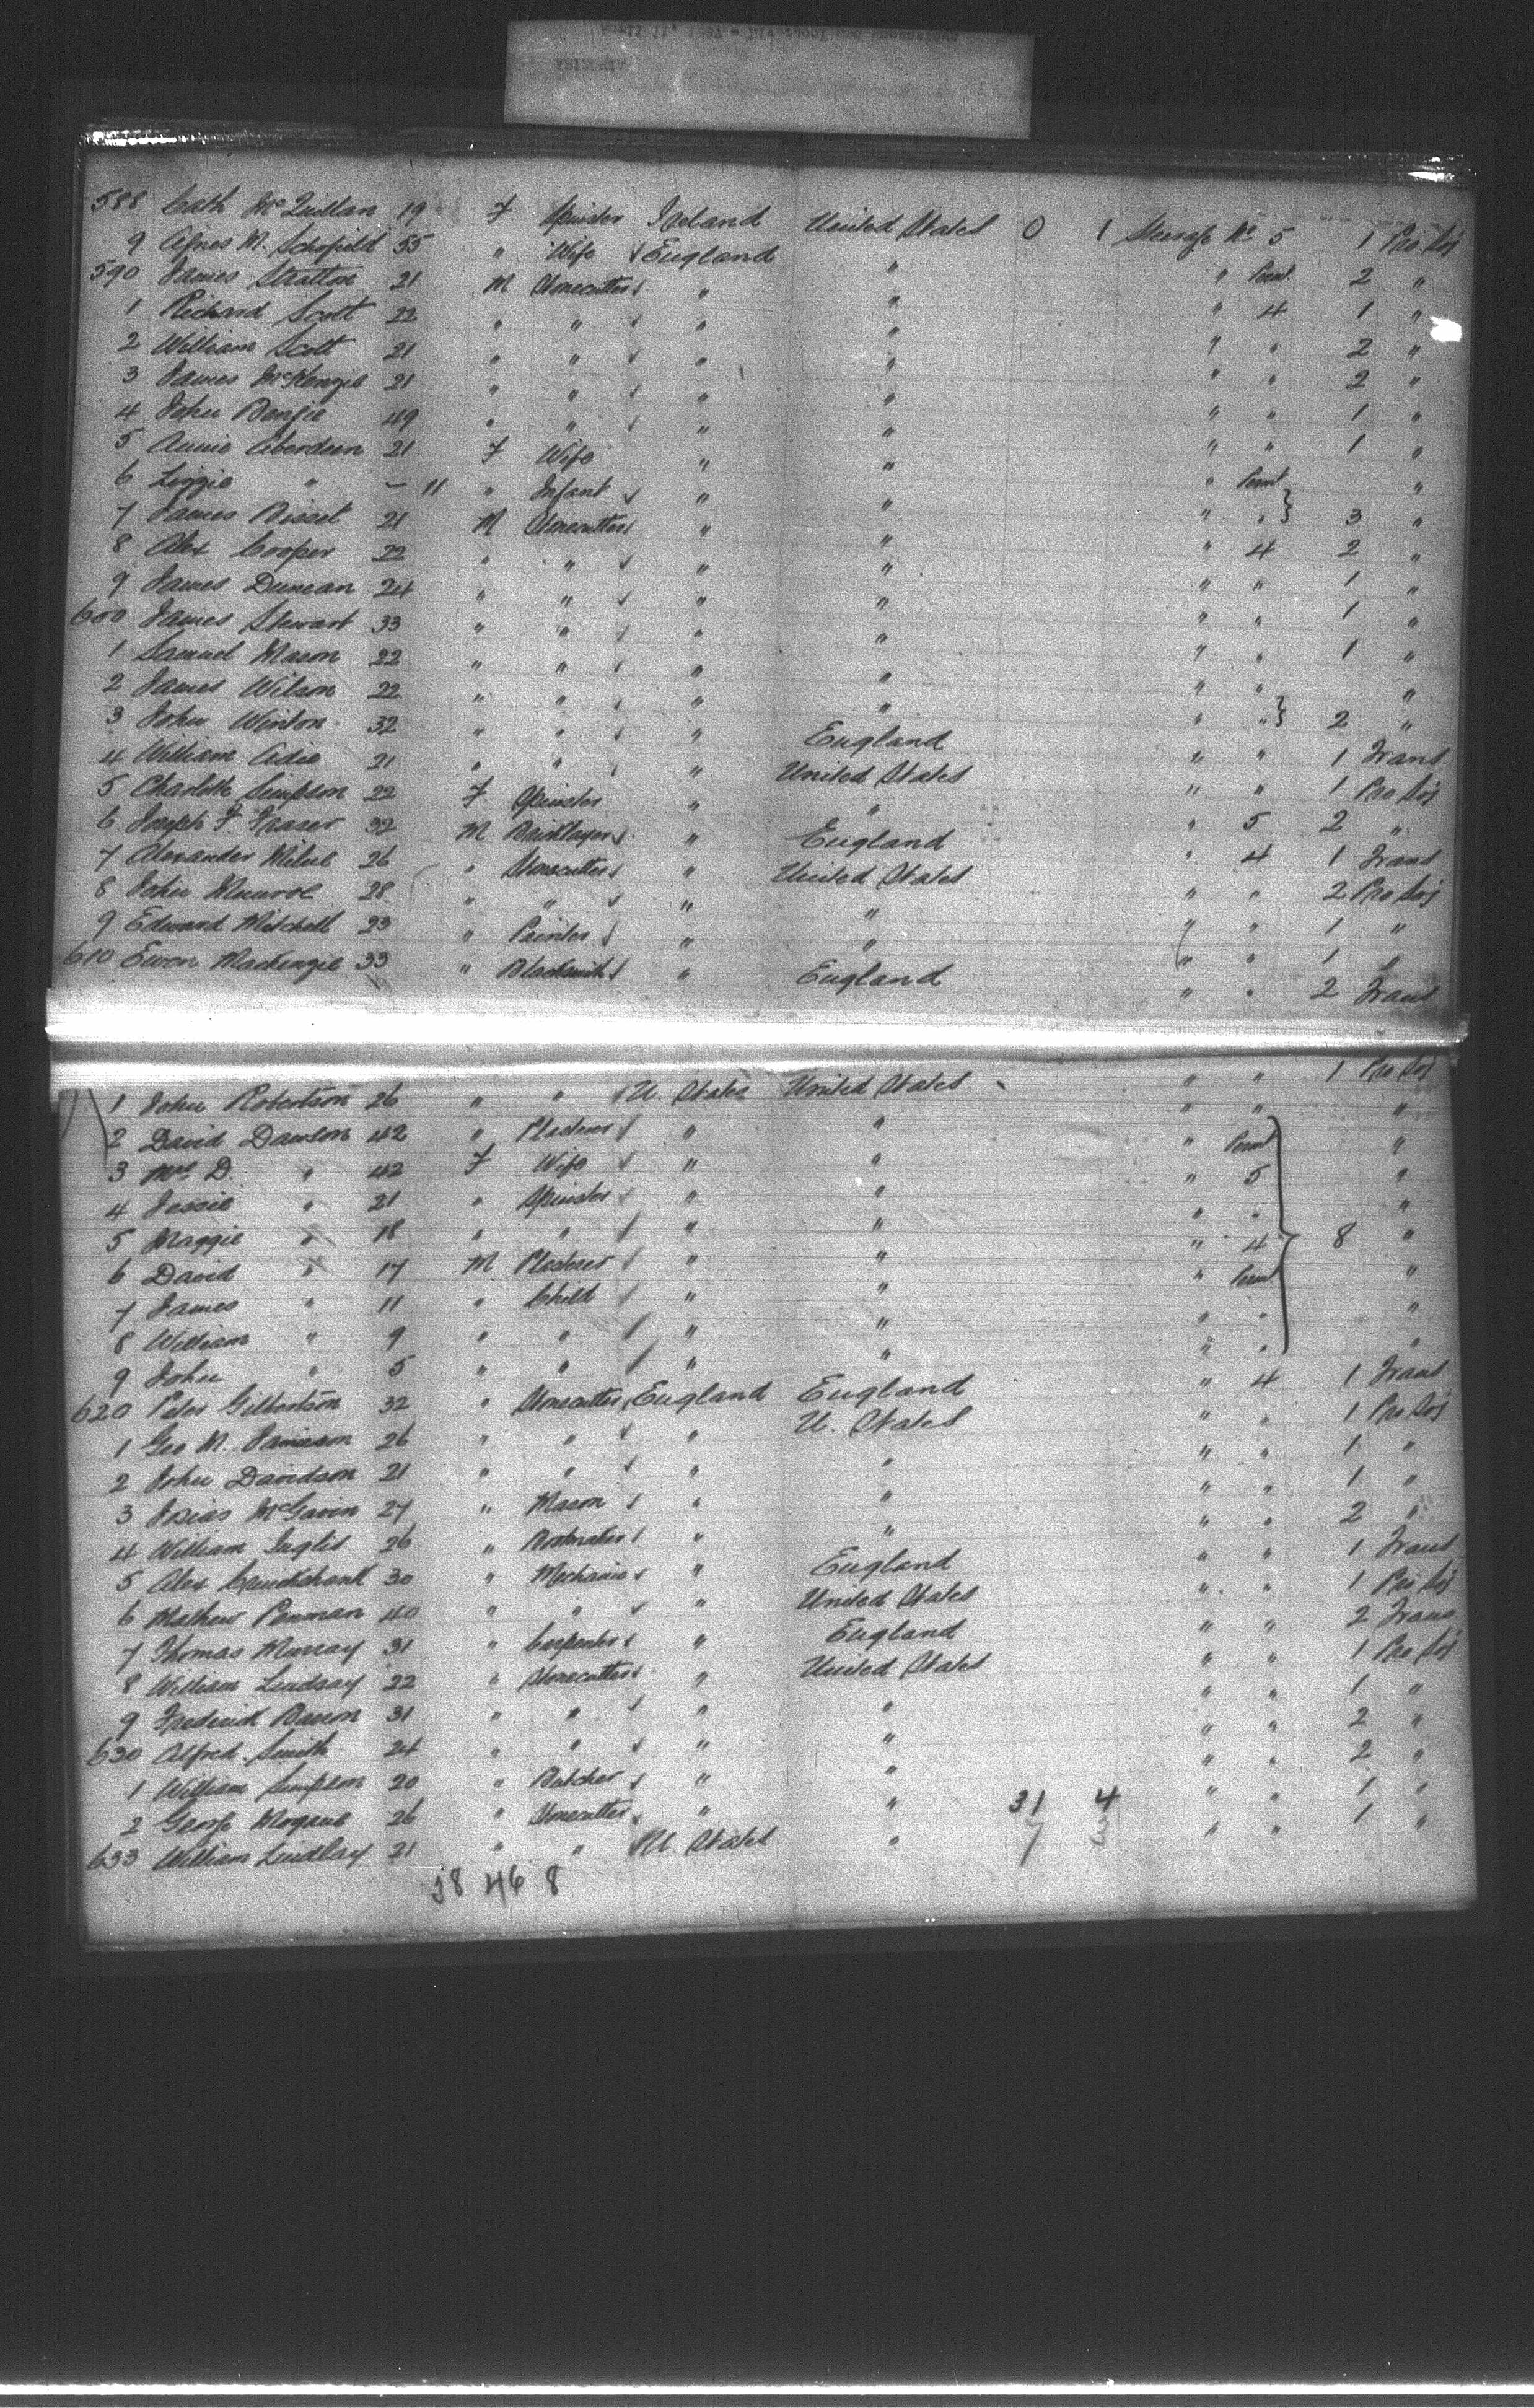 588 Cath McQuillan 19 F Spinster Ireland United States 0 1 Steerage No 5 1 Pro Soj
9 Agnes M. Schofield 55 " Wife England " " Permt. 2 "
590 James Stratton 21 M Stonecutter " " " 4 1 "
1 Richard Scott 22 " " " " " " 2 "
2 William Scott 21 " " " " " " 2 "
3 James McKenzie 21 " " " " " " 1 "
4 John Bengie 49 " " " " " " 1 "
5 Annie Aberdeen 21 F Wife " " " Permt "
6 Lizzie " - 11 " Infant " " " " 3 "
7 James Bisset 21 M Stonecutter " " " 4 2 "
8 Alex Cooper 22 " " " " " " 1 "
9 James Duncan 24 " " " " " " 1 "
600 James Stewart 33 " " " " " " 1 "
1 Samuel Mason 22 " " " " " " "
2 James Wilson 22 " " " " " " 2 "
3 John Winton 32 " " " England " " 1 Trans
4 William Adie 21 " " " United States " " 1 Pro Soj
5 Charlotte Simpson 22 F Spinster " " " 5 2 "
6 Joseph F. Fraser 32 M Bricklayer " England " 4 1 Trans
7 Alexander Milne 26 " Stonecutter " United States " " 2 Pro Soj
8 John Munroe 28 " " " " " " 1 "
9 Edward Mitchell 23 " Painter " " " " 1 "
610 Ewen Mackenzie 33 " Blacksmith " England " " 2 Trans
1 John Robertson 26 " " U. States United States " " 1 Pro Soj
2 David Dawson 42 " Plasterer " " " " "
3 Mrs D. " 42 F Wife " " " Permt "
4 Jessie " 21 " Spinster " " " 5 "
5 Maggie " 18 " " " " " " "
6 David " 17 M Plasterer " " " 4 8 "
7 James " 11 " Child " " " Permt "
8 William " 9 " " " " " " "
9 John " 5 " " " " " " "
620 Peter Gilbertson 32 " Stonecutter England England " 4 1 Trans
1 Geo M. Jamieson 26 " " " U. States " " 1 Pro Soj
2 John Davidson 21 " " " " " " 1 "
3 McGavin 27 " Mason " " " " 1 "
4 William Inglis 26 " Bootmaker " " " " 2 "
5 Alex Cruickshank 30 " Mechanic " England " " 1 Trans
6 Mathew Penman 40 " " " United States " " 1 Pro Soj
7 Thomas Murray 31 " Carpenter " England " " 2 Trans
8 William Lindsay 22 " Stonecutter " United States " " 1 Pro Soj
9 Frederick Baron 31 " " " " " " 1 "
630 Alfred Smith 24 " " " " " " 2 "
1 William Simpson 20 " Butcher " " " " 2 "
2 George 26 " Stonecutter " " 31 4 " " 1 "
633 William Lindsay 21 " " U. States " " " 1 "
38 46 8